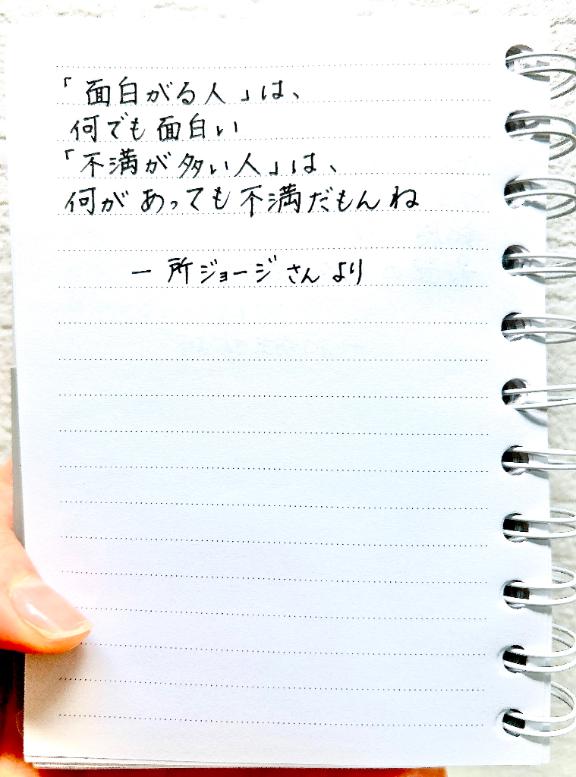 「面白がる人」は、
何でも面白い
「不満が多い人」は、
何があっても不満だもんね
ー所ジョージさんより